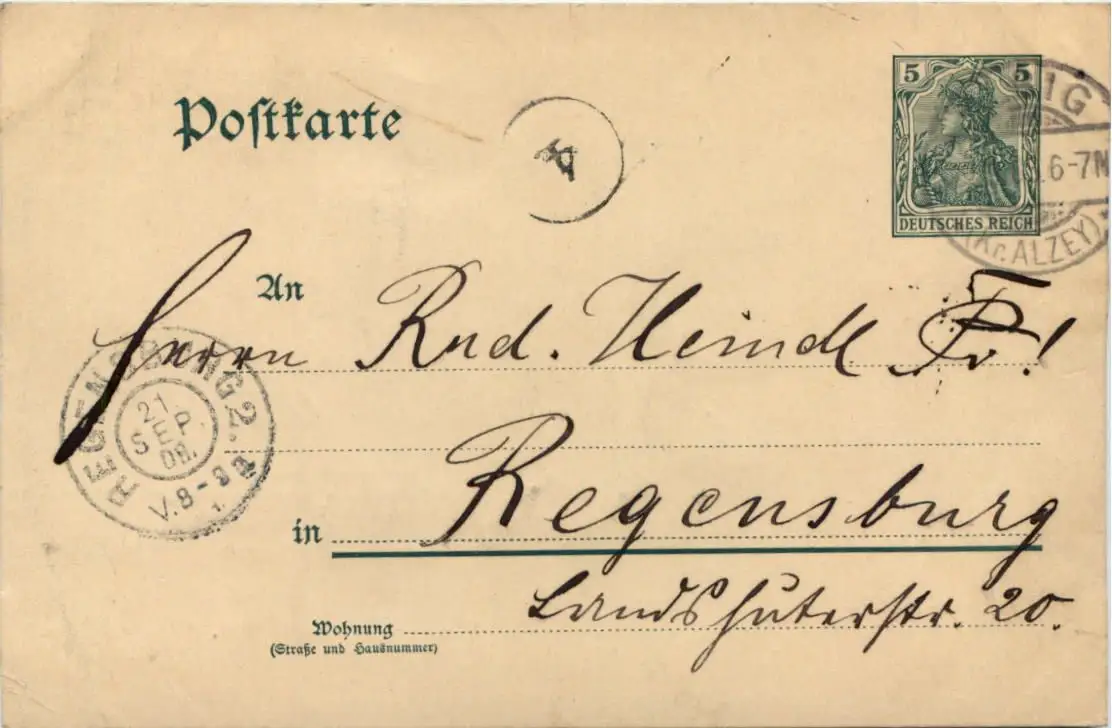 5 5
IG
6-7N
DEUTSCHES REICH
(Kr. ALZEY)
Postkarte
A
An Herrn Rud. Heindl Fr!
REGENSBURG 2.
21
SEP.
08.
V.8-9
in Regensburg
Landshuterstr. 20.
Wohnung
(Straße und Hausnummer)